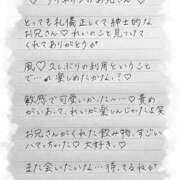 とっても礼儀正しくて紳士的な
お兄さん♡れいのこと見つけて
くれてありがとう
風♡久しぶりの利用ということ
で…楽しめたかな?♡
敏感で可愛いかったん…♡責め
がいあって、れいが楽しんじゃたよ笑
お兄さんがくれた飲み物、すごい
ハマっちゃた♡大好き。♡
また会いたいな…待ってるねっ